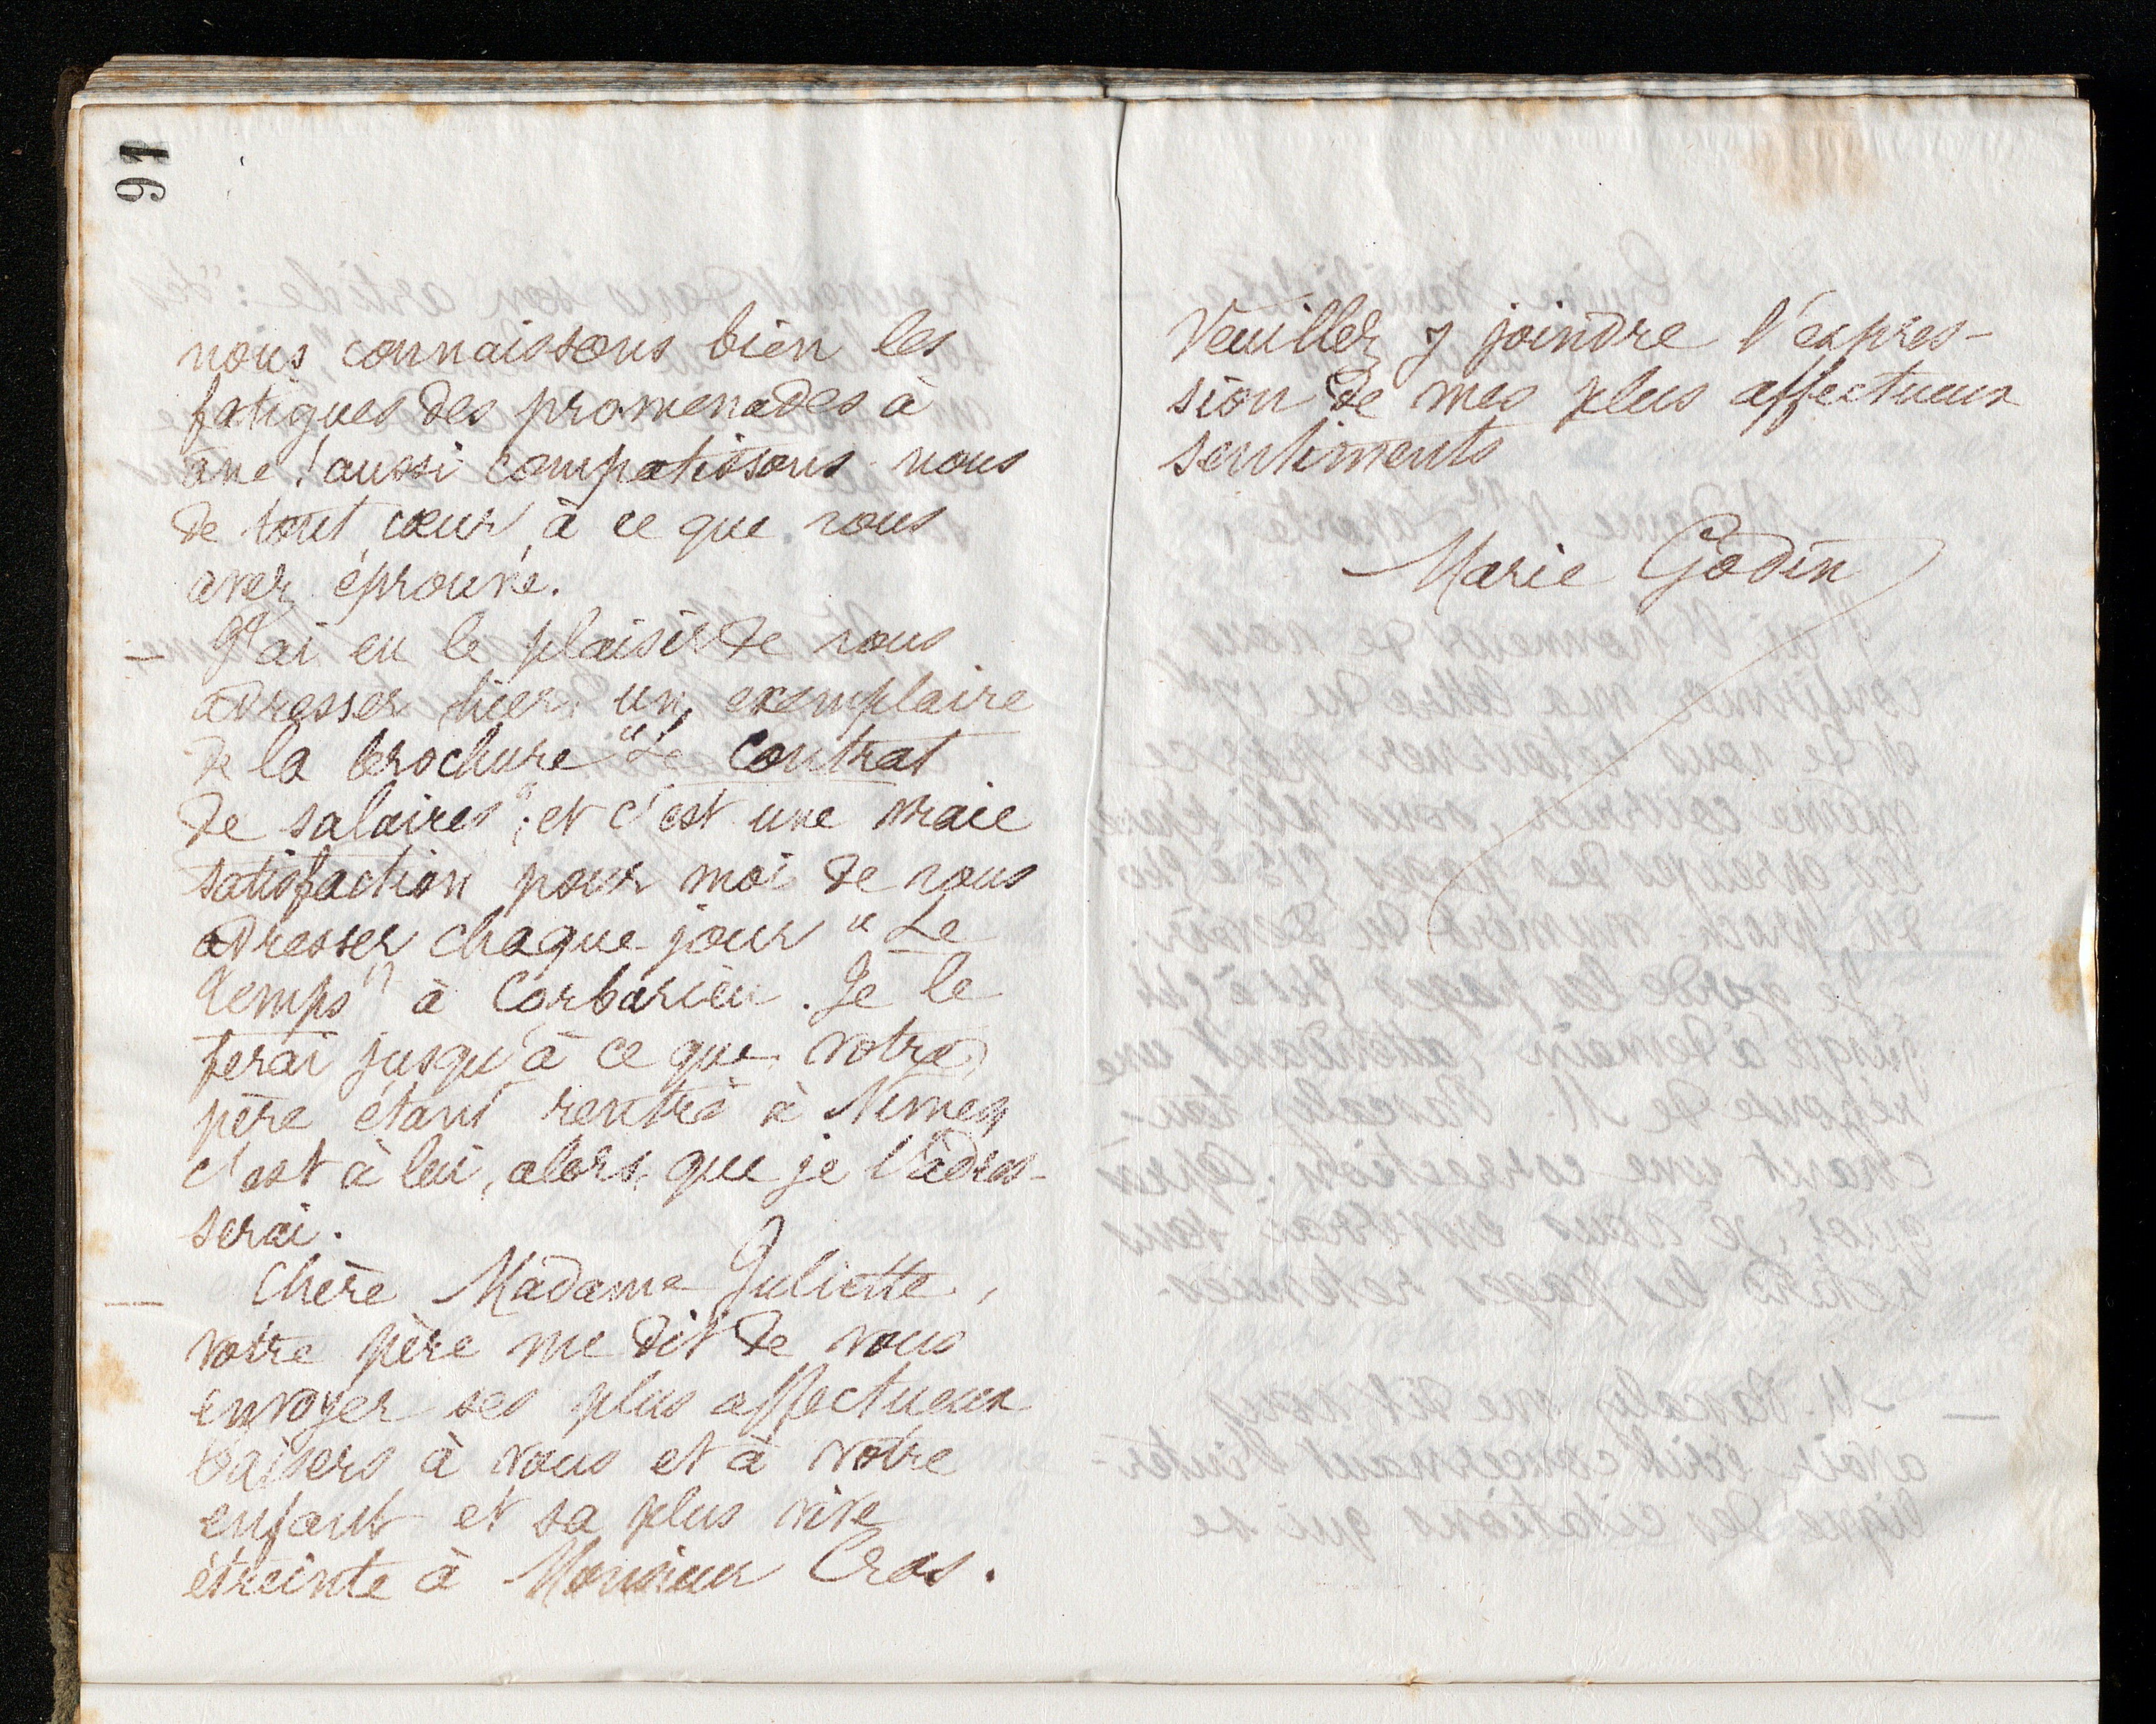 91
nous connaissons bien les
fatigues des promenades à
âne ! aussi compatissons-nous
de tout cœur, à ce que vous
avez éprouvé.
— J'ai eu le plaisir de vous
adresser hier, un exemplaire
de la brochure "Le Contrat
de salaires"; et c'est une vraie
satisfaction pour moi de vous
adresser chaque jour "Le
Temps" à Corbarieu. Je le
ferai jusqu'à ce que, votre
père étant rentré à Nimes,
c'est à lui, alors, que je l'adres-
serai.
— Chère Madame Juliette,
votre père me dit de vous
envoyer ses plus affectueux
baisers à vous et à votre
enfant et sa plus vive
étreinte à Monsieur Cros.
Veuillez y joindre l'expres-
sion de mes plus affectueux
sentiments
Marie Godin